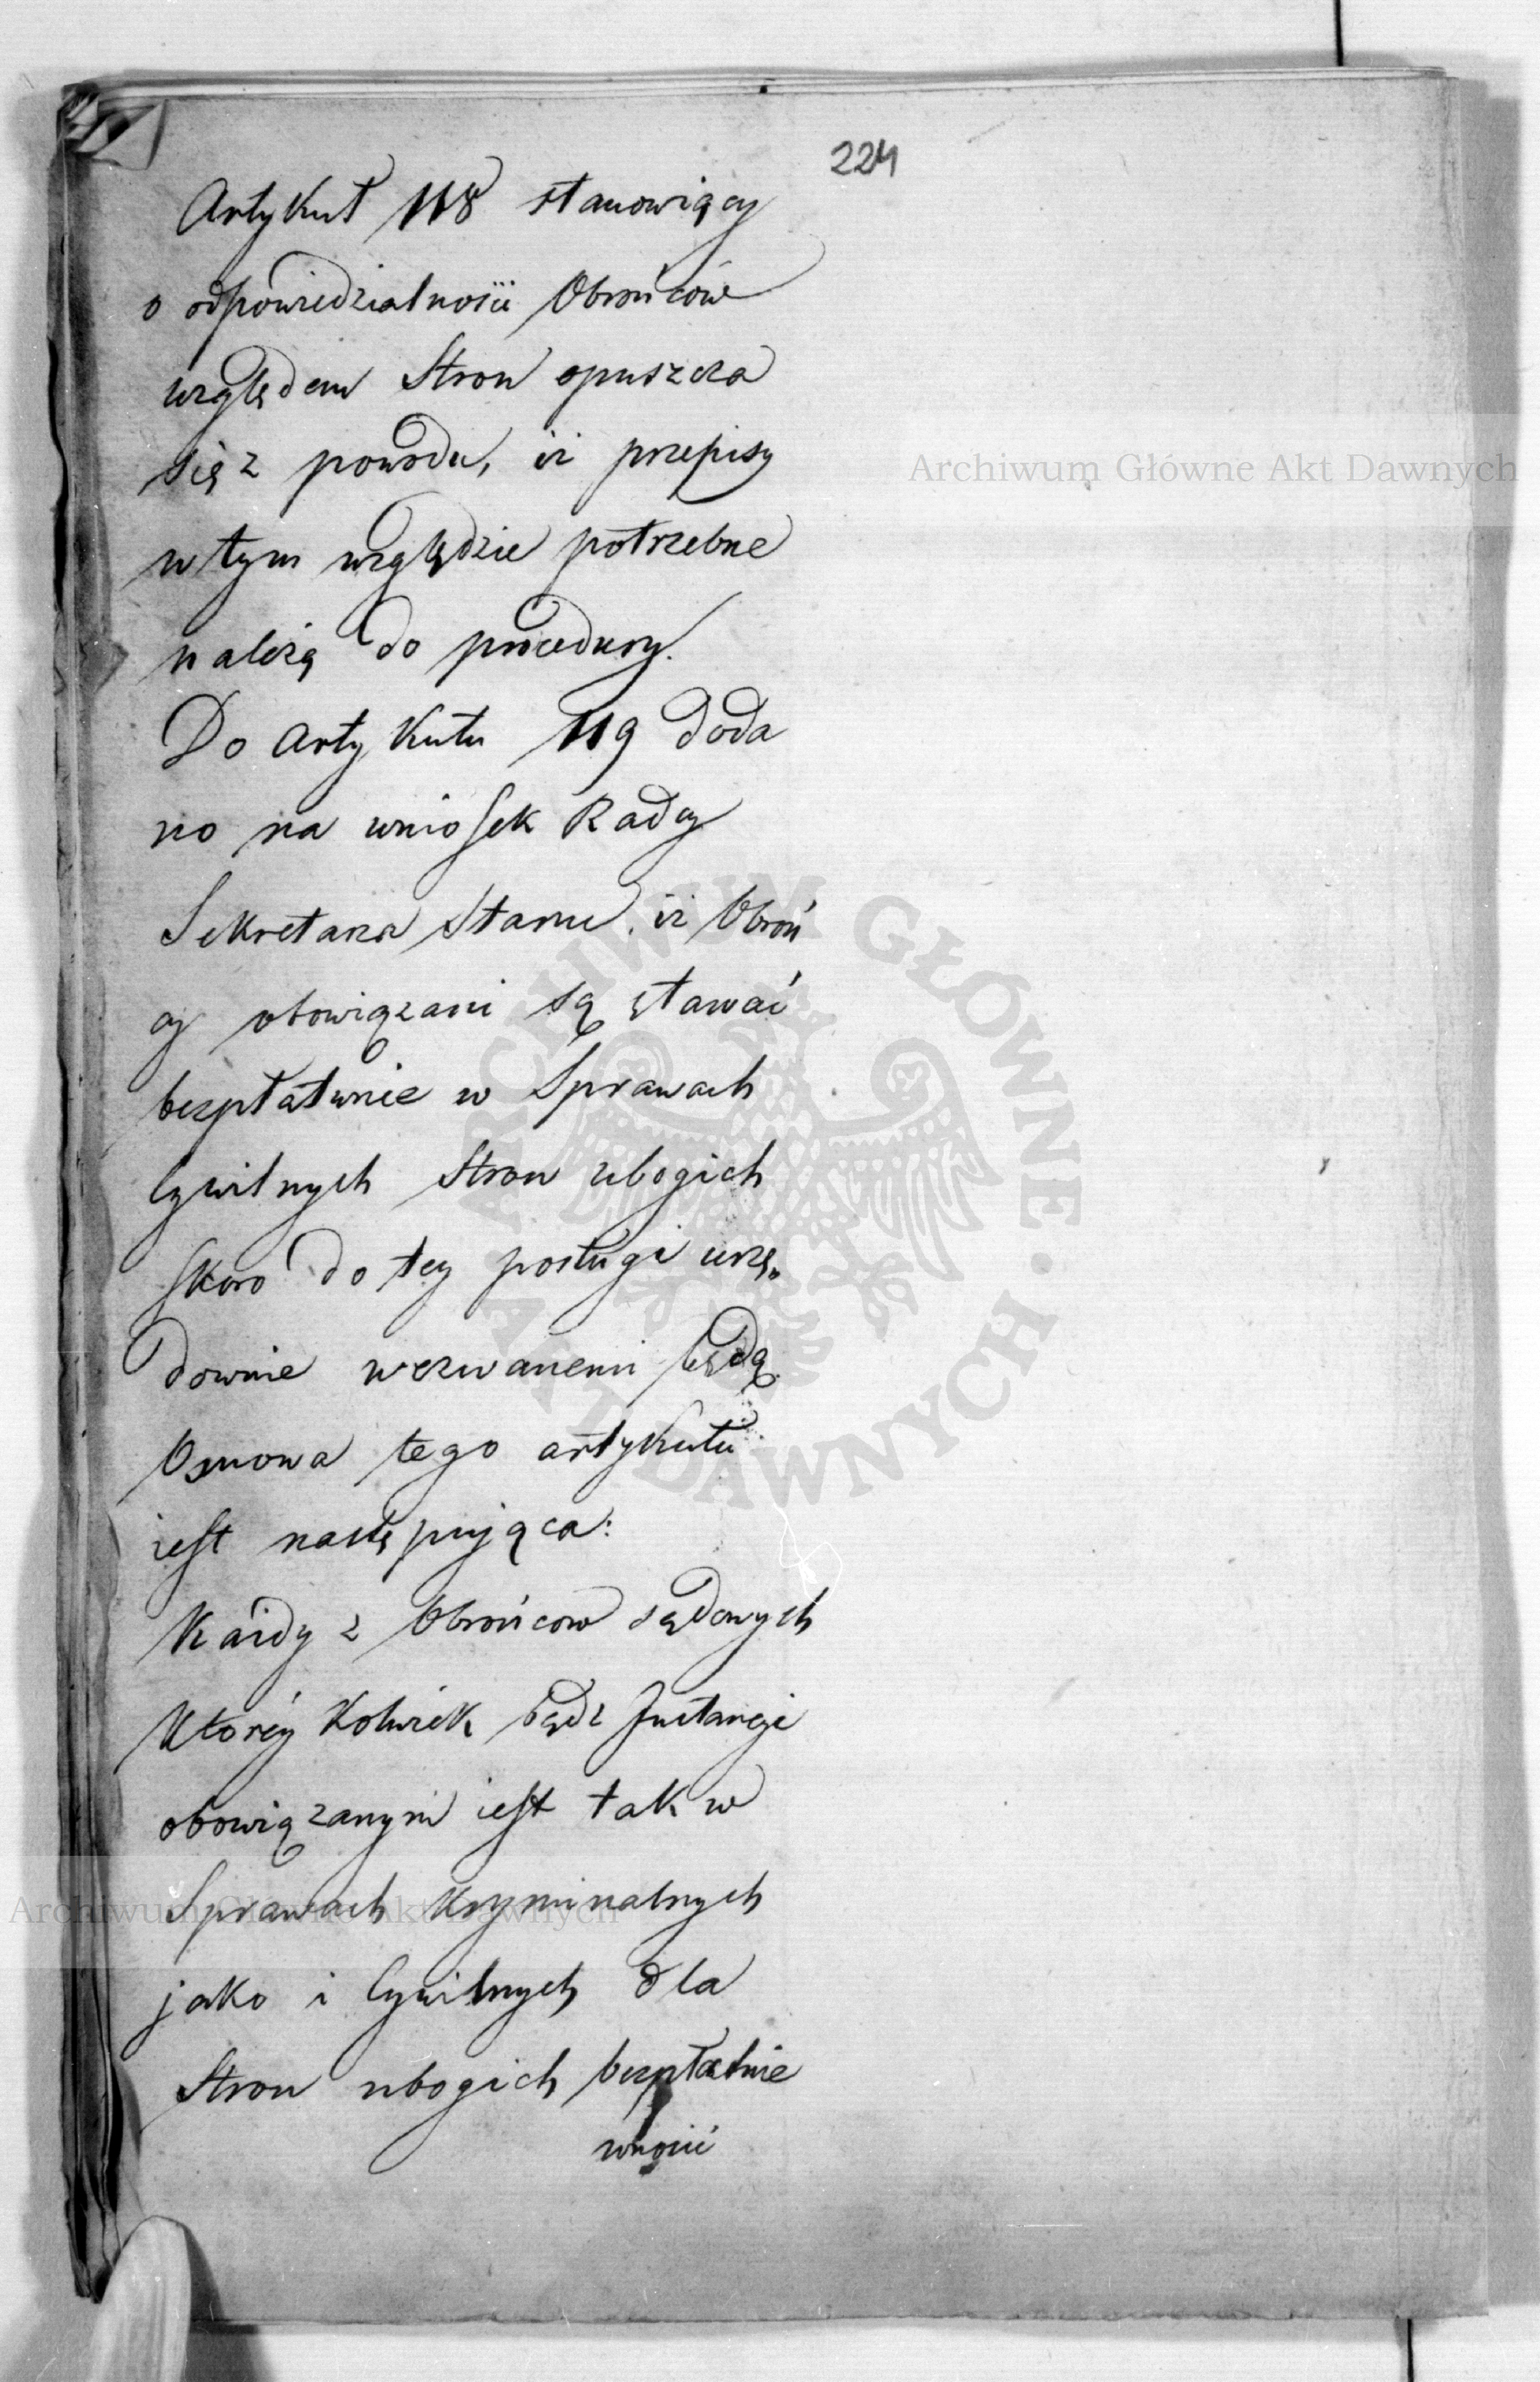 224
Artykuł 118 stanowiący
o odpowiedzialności Obrońców
względem Stron opuszcza
się z powodu, iż przepisy
w tym względzie potrzebne
należą do procedury.
Do Artykułu 119 doda
no na wniosek Radcy
Sekretarza Stanu, iż Obroń
cy obowiązani są stawać
bezpłatnie w Sprawach
Cywilnych Stron ubogich
skoro do tey posługi urzę„
downie wezwanemi będą.
Osnowa tego artykułu
iest następująca:
Każdy z Obrońcow sądowych
Ktoréy Kolwiek bądź Instancji
obowiązanym iest tak w
Sprawach Kryminalnych
jako i Cywilnych dla
Stron ubogich bezpłatnie
wnosić
Archiwum Główne Akt Dawnych
ARCHIWUM GŁÓWNE AKT DAWNYCH
Archiwum Główne Akt Dawnych